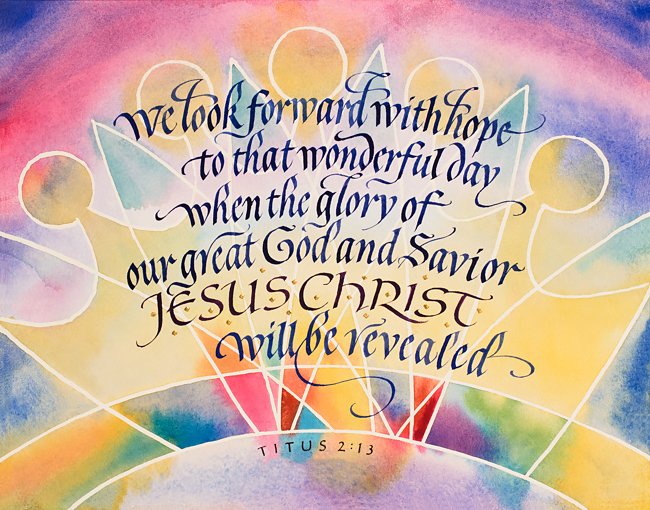 We look forward with hope
to that wonderful day
when the glory of
our great God and Savior
JESUS CHRIST
will be revealed
TITUS 2:13